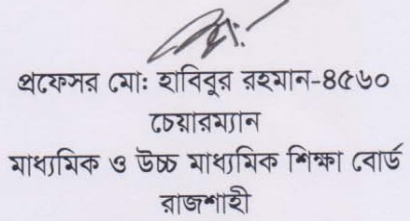 প্রফেসর মোঃ হাবিবুর রহমান-৪৫৬০
চেয়ারম্যান
মাধ্যমিক ও উচ্চ মাধ্যমিক শিক্ষা বোর্ড
রাজশাহী